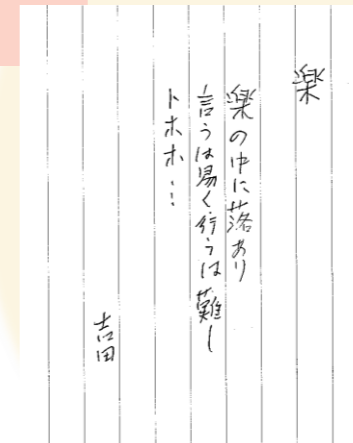 楽
楽の中に落あり
言うは易く行うは難し
トホホ…
吉田